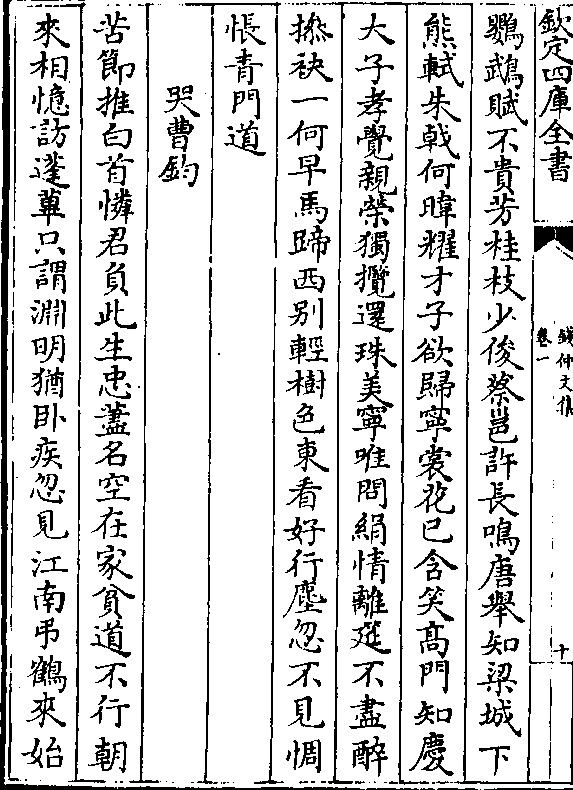 欽定四庫全書
錢仲文集
卷一
十
鸚鵡賦不貴芳桂枝少俊蔡邕許長鳴唐舉知梁城下
熊軾朱戟何暐耀才子欲歸寧裳花已含笑髙門知慶
大子孝覺親榮獨攬還珠美寧唯問絹情離筵不盡醉
摻袂一何早馬蹄西别輕樹色東看好行塵忽不見惆
悵青門道
哭曹鈞
苦節推白首憐君負此生忠藎名空在家貧道不行朝
來相憶訪蓬蓽只謂淵明猶卧疾忽見江南弔鶴來始